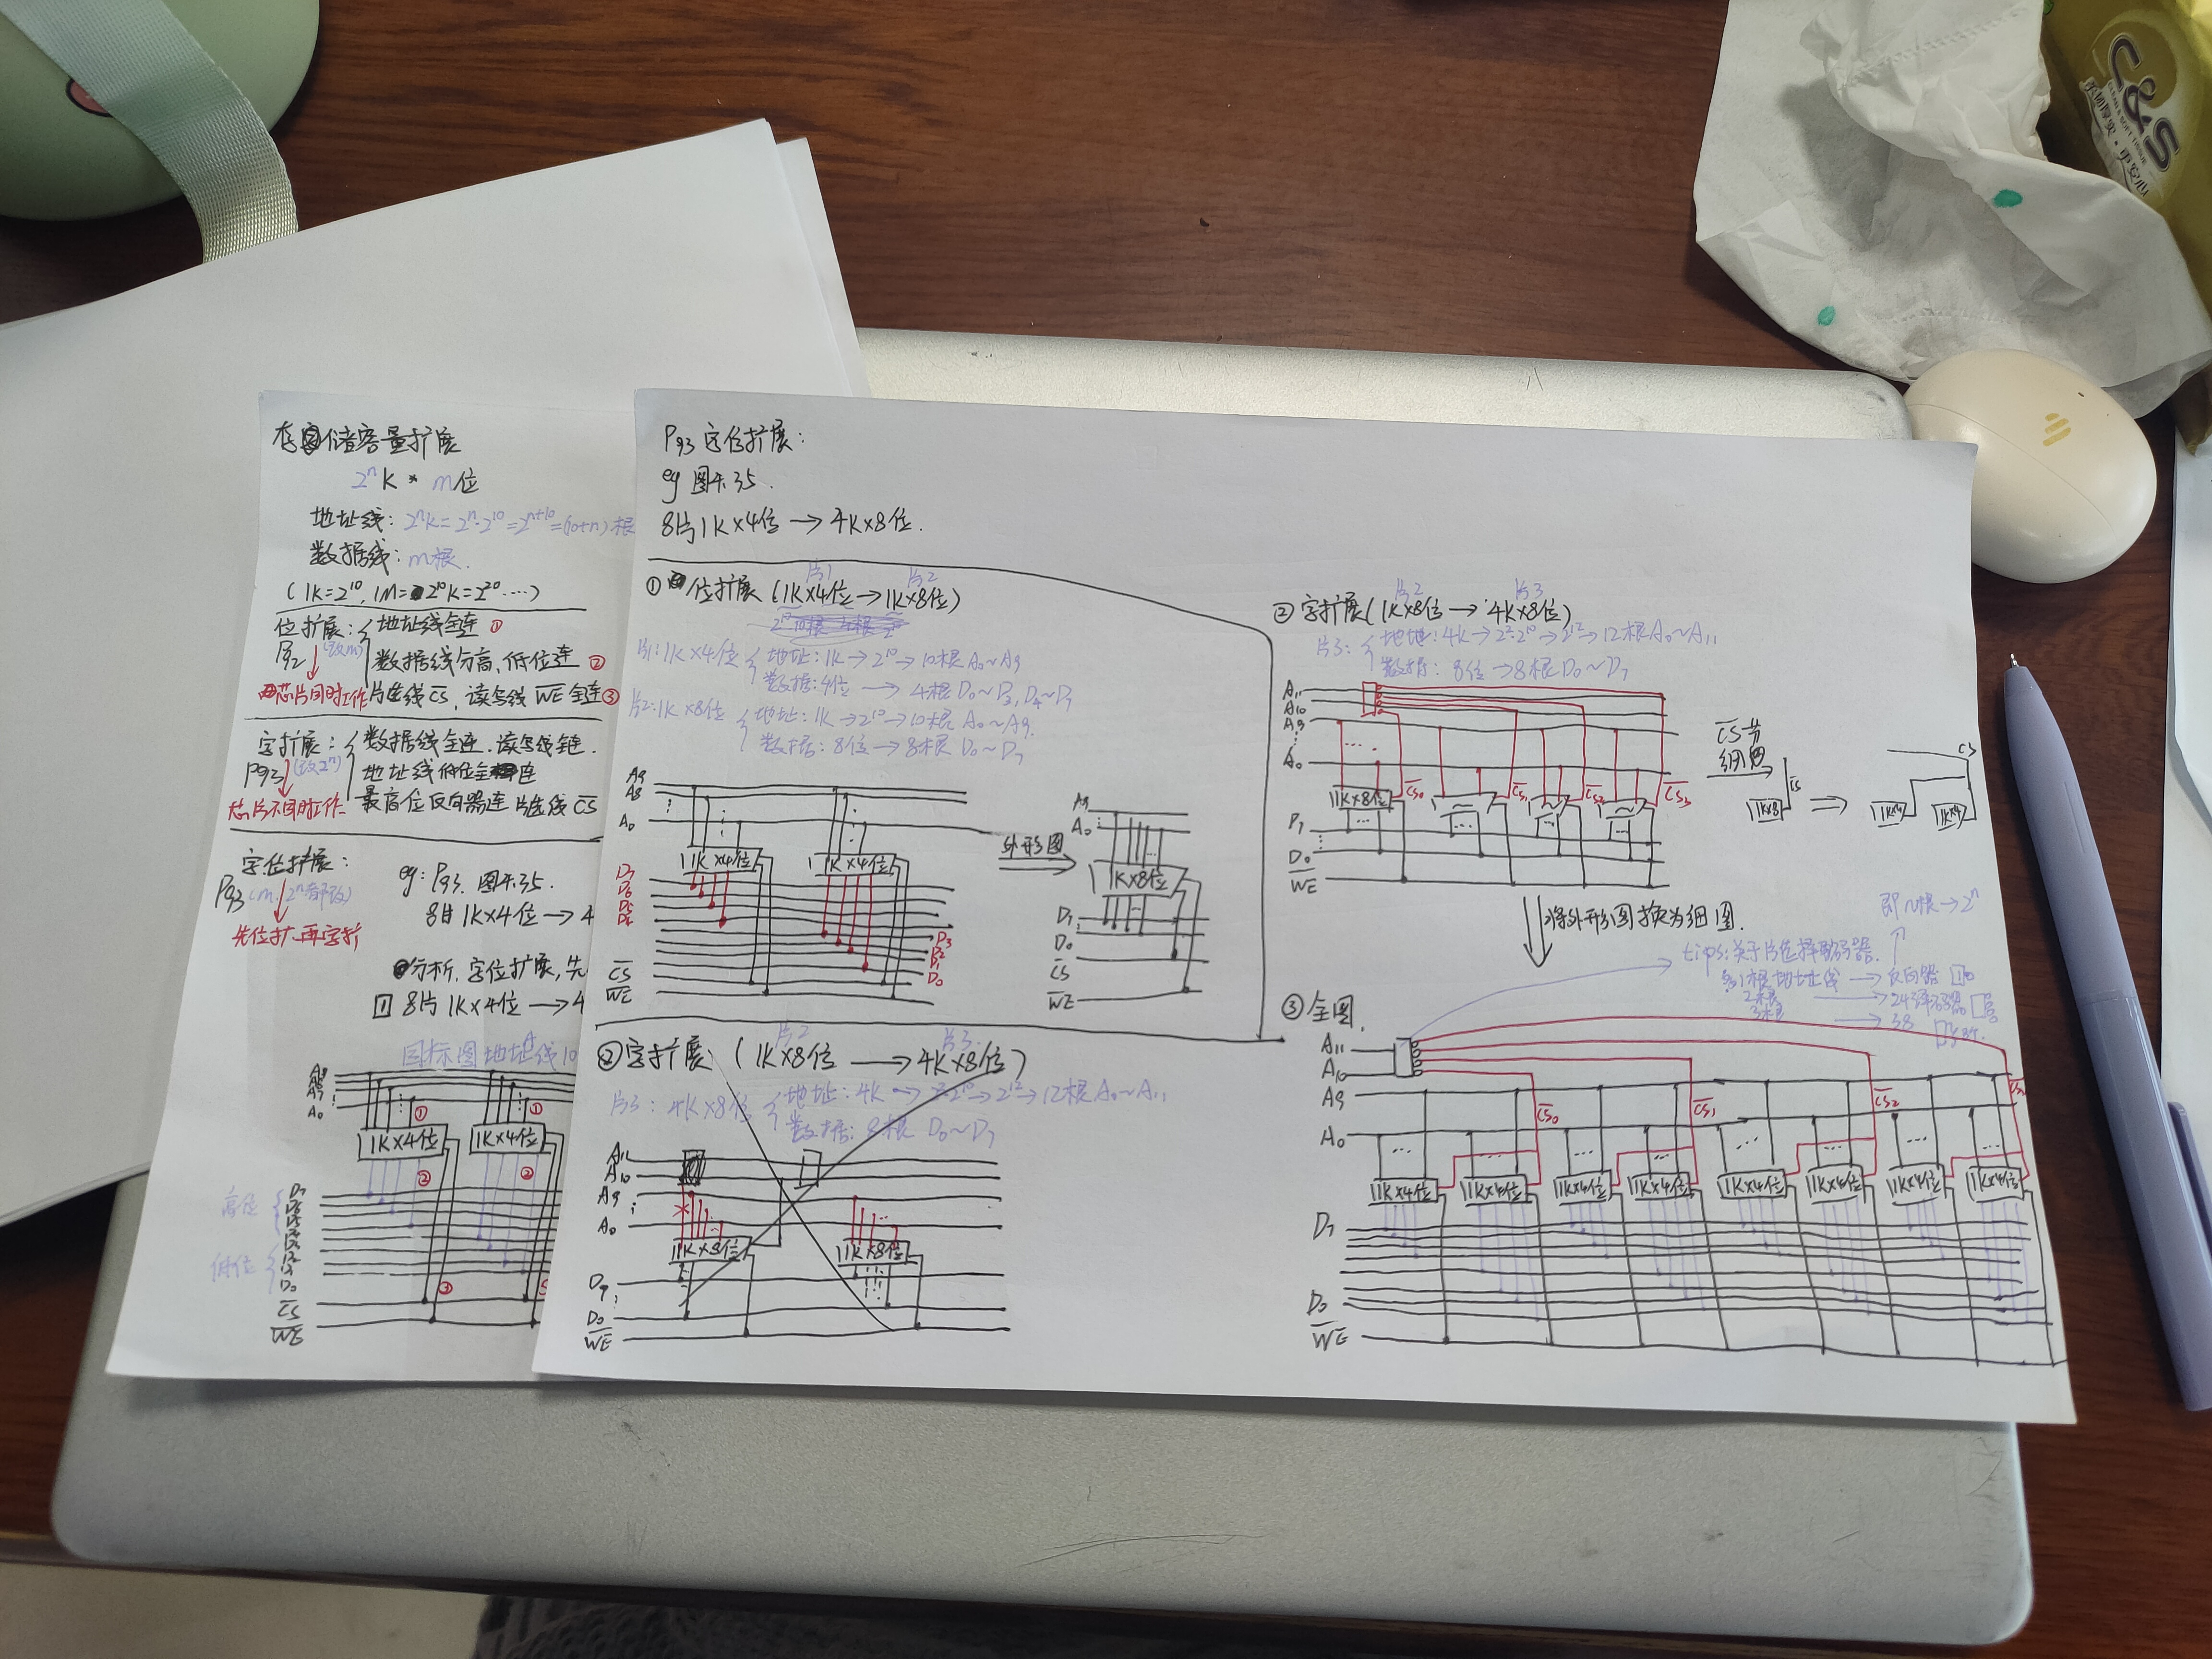 存储容量扩展
2ⁿK * m位
地址线: 2ⁿK=2ⁿ·2¹⁰=2ⁿ⁺¹⁰=(10+n)根
数据线: m根.
(1K=2¹⁰, 1M=2¹⁰K=2²⁰....)
位扩展: { 地址线全连 ①
P92 (改m) 数据线分高、低位连 ②
芯片同时工作 片选线C̅S̅, 读写线W̅E̅全连 ③
字扩展: { 数据线全连.读写线全连.
P93 (改2ⁿ) 地址线低位全连
芯片不同时工作 最高位反向器连片选线C̅S̅
字位扩展:
P93 (m、2ⁿ都改)
先位扩、再字扩
eg: P93. 图4.35.
8片1K×4位→4
分析,字位扩展,先
① 8片1K×4位→4
目标图地址线10
A9
A0
①
①
1K×4位
1K×4位
②
②
高位
低位
D7
D0
③
C̅S̅
W̅E̅
P93 字位扩展:
eg 图4.35.
8片1K×4位→4K×8位.
片1 片2
① 位扩展 (1K×4位→1K×8位)
片1:1K×4位 { 地址:1K→2¹⁰→10根A0~A9
数据:4位→4根D0~D3,D4~D7
片2:1K×8位 { 地址:1K→2¹⁰→10根A0~A9.
数据:8位→8根D0~D7
A9
A8
A0
1K×4位
1K×4位
D7
D6
D5
D4
D3
D2
D1
D0
C̅S̅
W̅E̅
外形图
A9
A0
1K×8位
D7
D0
C̅S̅
W̅E̅
片2 片3
② 字扩展: (1K×8位→4K×8位)
片3: 4K×8位 { 地址:4K→2²·2¹⁰→2¹²→12根A0~A11
数据:8根 D0~D7
A11
A10
A9
A0
1K×8位
1K×8位
D0
W̅E̅
片2 片3
② 字扩展(1K×8位→4K×8位)
片3: { 地址:4K→2²·2¹⁰→2¹²→12根A0~A11
数据:8位→8根D0~D7
A11
A10
A9
A0
1K×8位
C̅S̅0
C̅S̅1
C̅S̅2
C̅S̅3
D7
D0
W̅E̅
C̅S̅
1K×8
C̅S̅
1K×4
1K×4
将外形图换为细图.
即n根→2ⁿ
1根地址线→反向器
2根→24译码器
3根→38
③全图.
A11
A10
A9
A0
C̅S̅0
C̅S̅1
C̅S̅2
1K×4位
1K×4位
1K×4位
1K×4位
1K×4位
1K×4位
1K×4位
1K×4位
D7
D0
W̅E̅
C&S